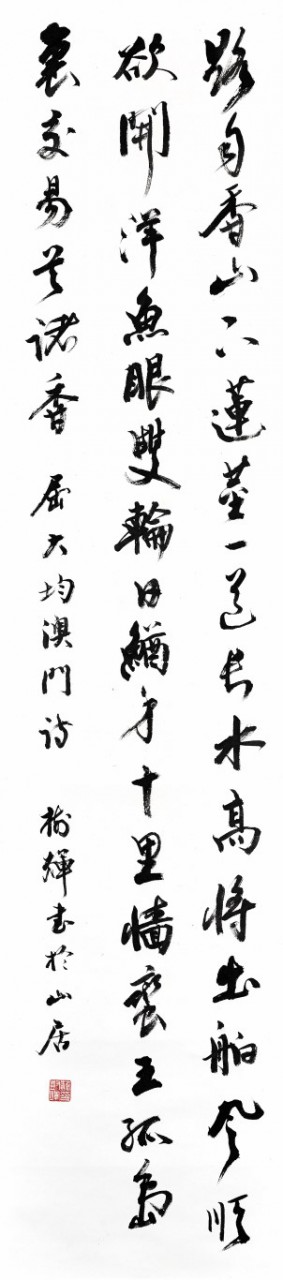 路自香山下蓮莖一道長水高將出舶風順
欲開洋魚眼雙輪日鰌身十里牆蠻王孤島
裏交易首諸香 屈大均澳門詩 樹輝書於山居